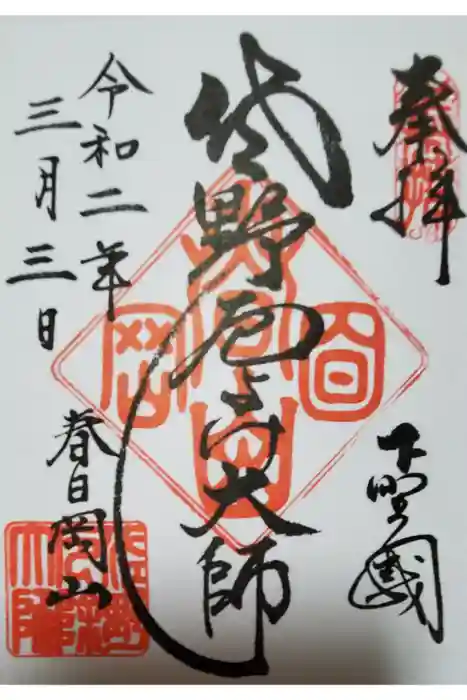 奉拝
下野國
佐野厄よけ大師
令和二年
三月三日
春日岡山